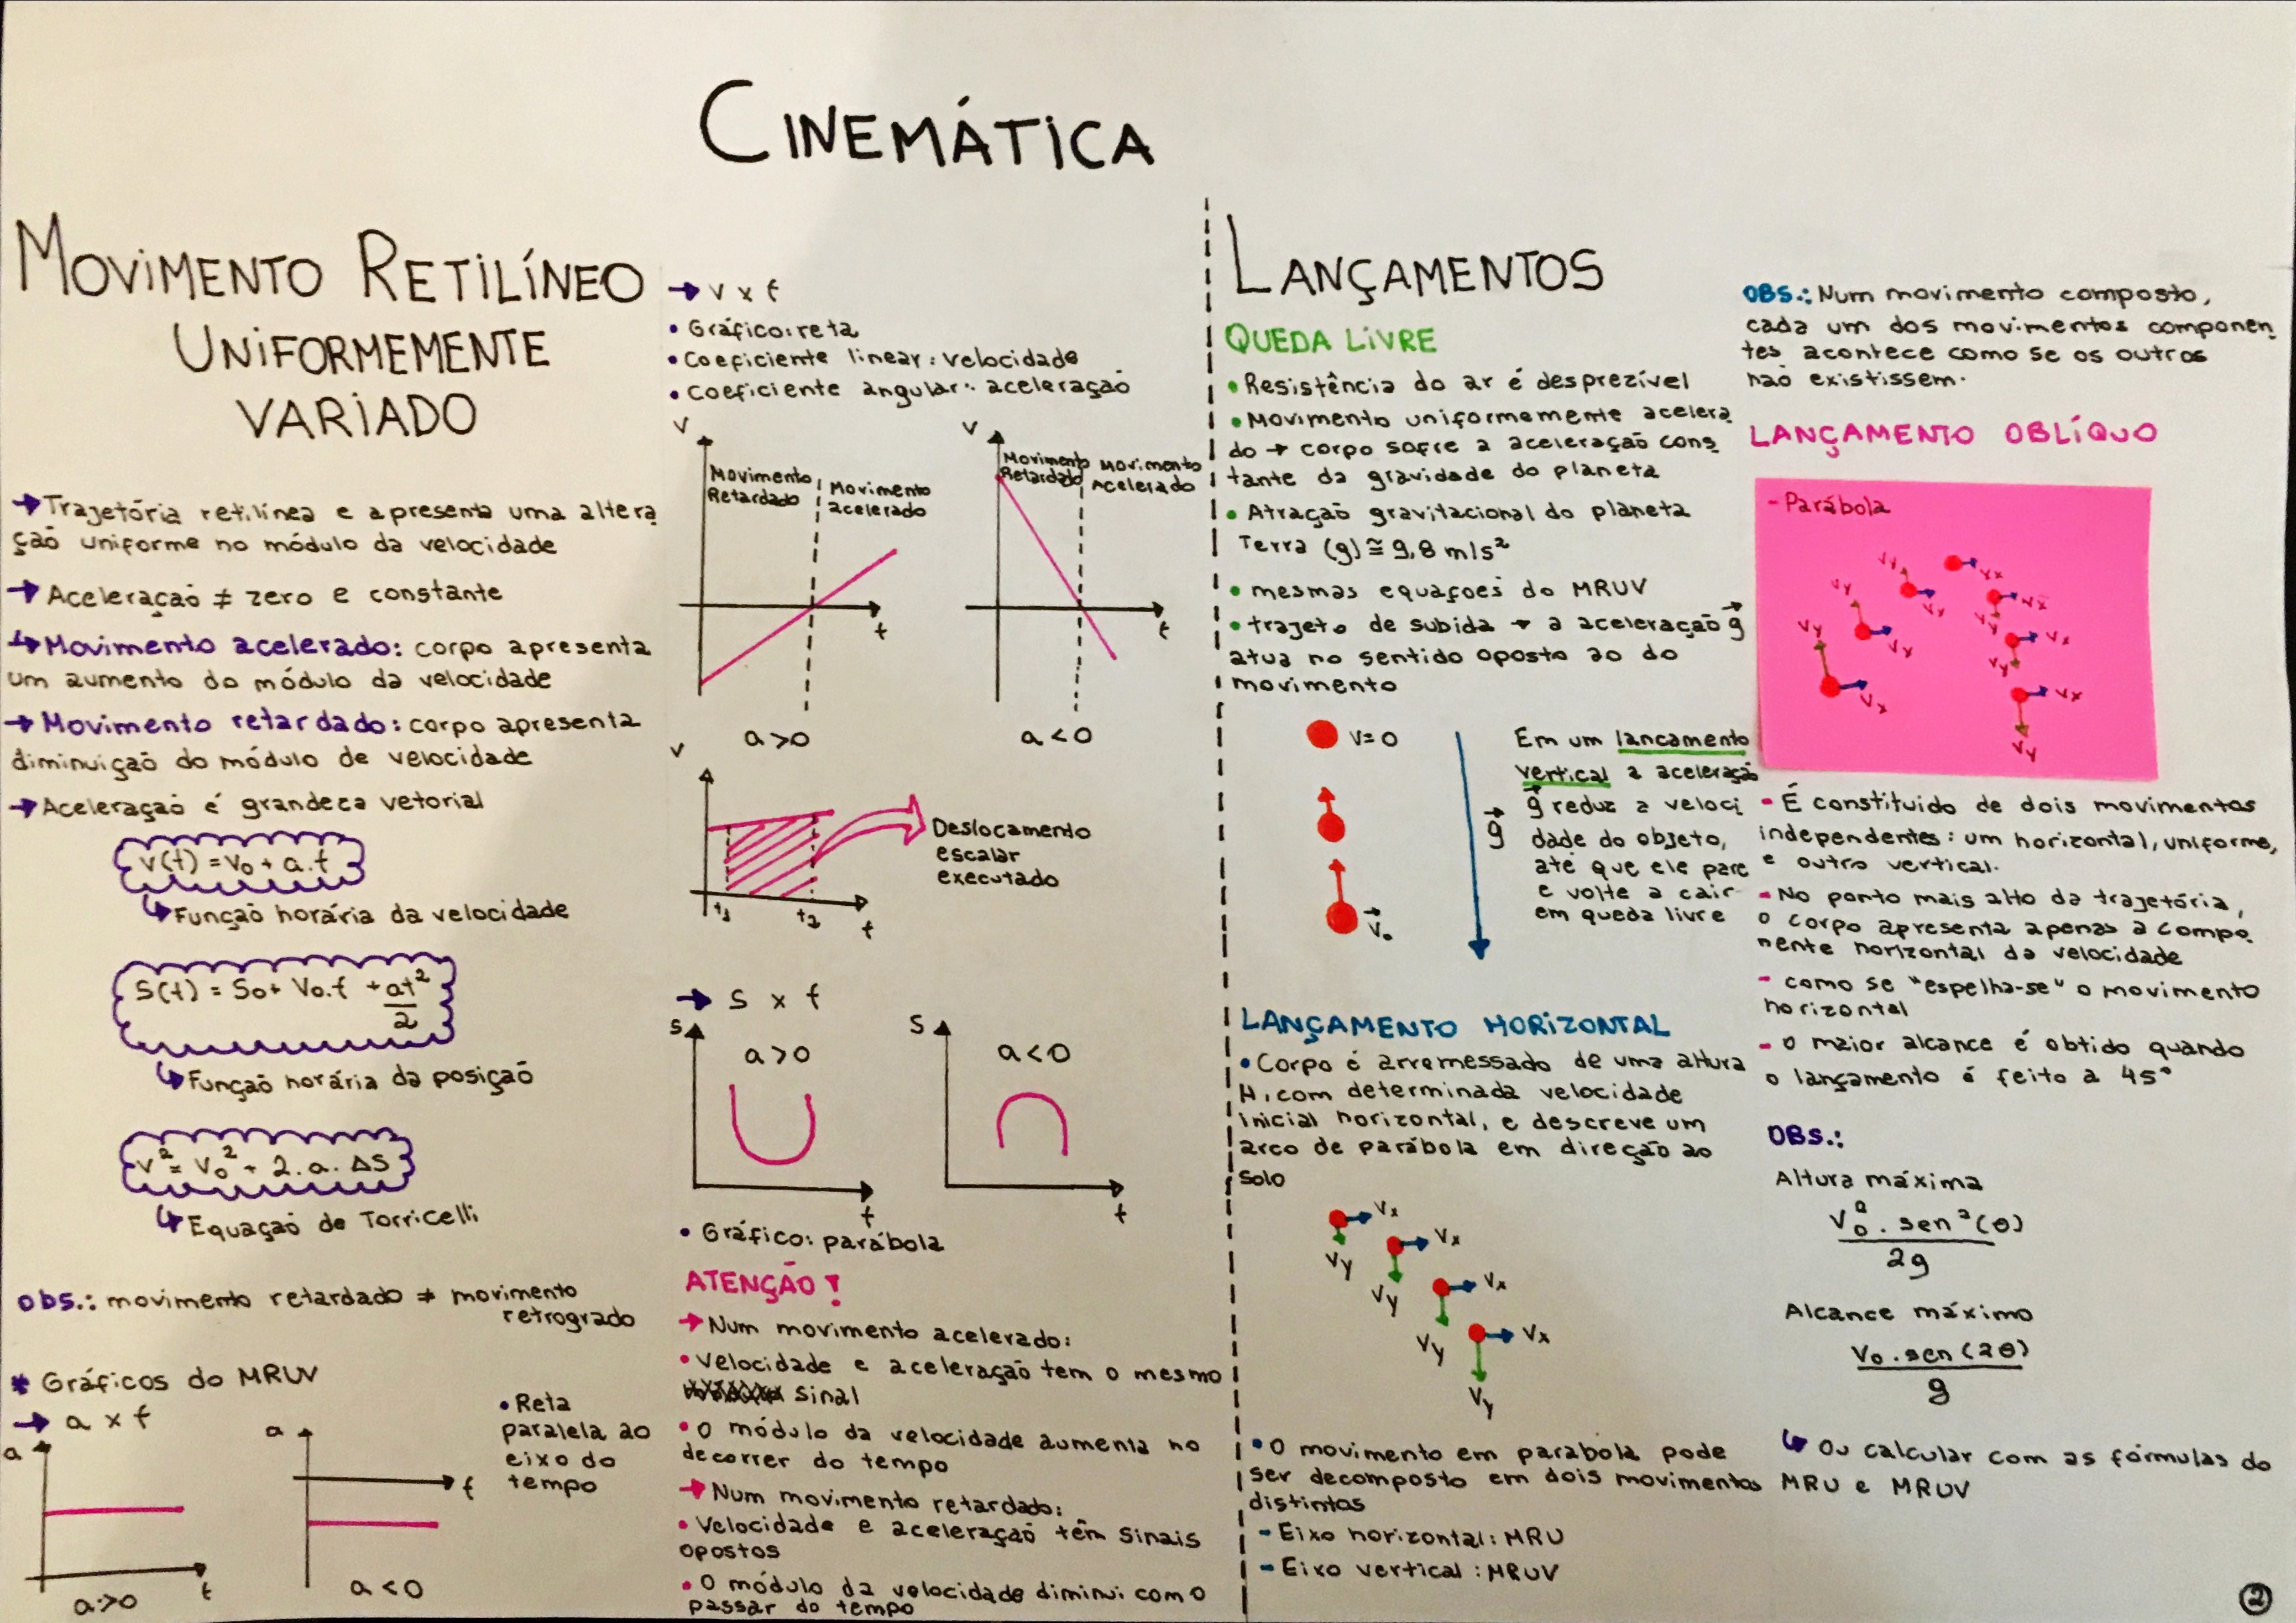 CINEMÁTICA
MOVIMENTO RETILÍNEO
UNIFORMEMENTE
VARIADO
→ Trajetória retilínea e apresenta uma altera
ção uniforme no módulo da velocidade
→ Aceleração ≠ zero e constante
↳ Movimento acelerado: corpo apresenta
um aumento do módulo da velocidade
→ Movimento retardado: corpo apresenta
diminuição do módulo de velocidade
→ Aceleração é grandeza vetorial
v(t) = v₀ + a.t
↳ Função horária da velocidade
S(t) = S₀ + V₀.t + at²/2
↳ Função horária da posição
v² = v₀² + 2.a.ΔS
↳ Equação de Torricelli
Obs.: movimento retardado ≠ movimento
retrogrado
* Gráficos do MRUV
→ a x t
a
t
a>0
a
t
a<0
• Reta
paralela ao
eixo do
tempo
→ v x t
• Gráfico: reta
• Coeficiente linear: velocidade
• Coeficiente angular: aceleração
v
Movimento
Retardado
Movimento
acelerado
t
a>0
v
Movimento
Retardado
Movimento
Acelerado
t
a<0
v
t₁
t₂
t
Deslocamento
escalar
executado
→ S x t
S
a>0
t
S
a<0
t
• Gráfico: parábola
ATENÇÃO!
→ Num movimento acelerado:
• Velocidade e aceleração tem o mesmo
sinal
• O módulo da velocidade aumenta no
decorrer do tempo
→ Num movimento retardado:
• Velocidade e aceleração têm sinais
opostos
• O módulo da velocidade diminui com o
passar do tempo
LANÇAMENTOS
QUEDA LIVRE
• Resistência do ar é desprezível
• Movimento uniformemente acelera
do → corpo sofre a aceleração cons
tante da gravidade do planeta
• Atração gravitacional do planeta
Terra (g) ≅ 9,8 m/s²
• mesmas equações do MRUV
• trajeto de subida → a aceleração g⃗
atua no sentido oposto ao do
movimento
v=0
v⃗₀
g⃗
Em um lancamento
vertical a aceleração
g⃗ reduz a veloci
dade do objeto,
até que ele pare
e volte a cair
em queda livre
LANÇAMENTO HORIZONTAL
• Corpo é arremessado de uma altura
H, com determinada velocidade
inicial horizontal, e descreve um
arco de parábola em direção ao
solo
Vx
Vy
Vx
Vy
Vx
Vy
Vx
Vy
• O movimento em parábola pode
ser decomposto em dois movimentos
distintos
- Eixo horizontal: MRU
- Eixo vertical: MRUV
OBS.: Num movimento composto,
cada um dos movimentos componen
tes acontece como se os outros
não existissem.
LANÇAMENTO OBLÍQUO
- Parábola
Vy
Vx
Vy
Vy
Vy
Vy
Vx
Vx
Vy
Vx
Vy
Vx
Vy
- É constituido de dois movimentos
independentes: um horizontal, uniforme,
e outro vertical.
- No ponto mais alto da trajetória,
o corpo apresenta apenas a compo
nente horizontal da velocidade
- como se "espelha-se" o movimento
horizontal
- O maior alcance é obtido quando
o lançamento é feito a 45°
OBS.:
Altura máxima
V₀² . sen²(θ)
2g
Alcance máximo
V₀ . sen(2θ)
g
↳ Ou calcular com as fórmulas do
MRU e MRUV
2